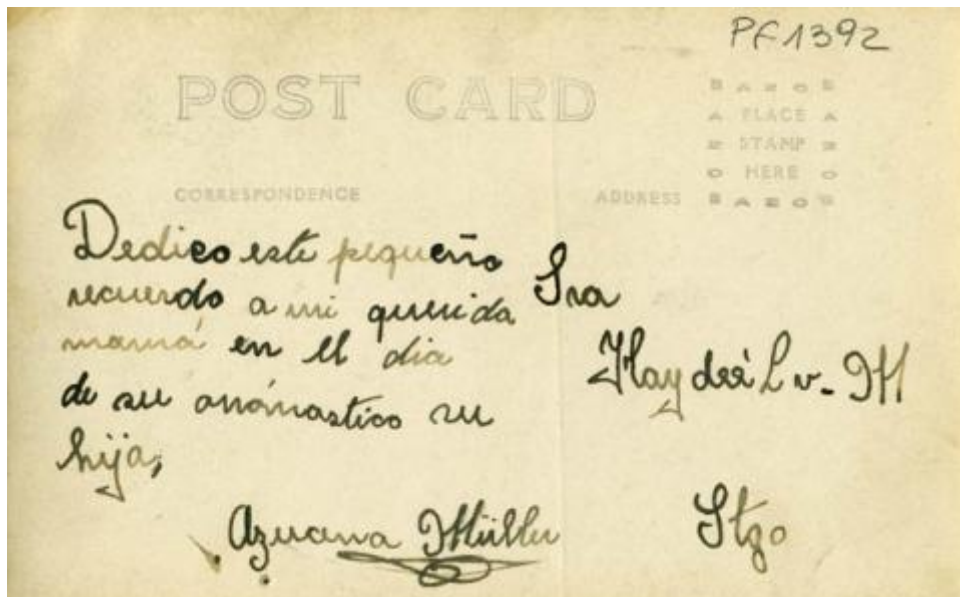 PF1392
POST CARD
BAZOB
A PLACE A
Z STAMP Z
O HERE O
BAZOB
CORRESPONDENCE
ADDRESS
Dedico este pequeño
recuerdo a mi querida
mamá en el dia
de su onónastico su
hija,
Azucena Müller
Sra
Haydeé L v. M
Stgo